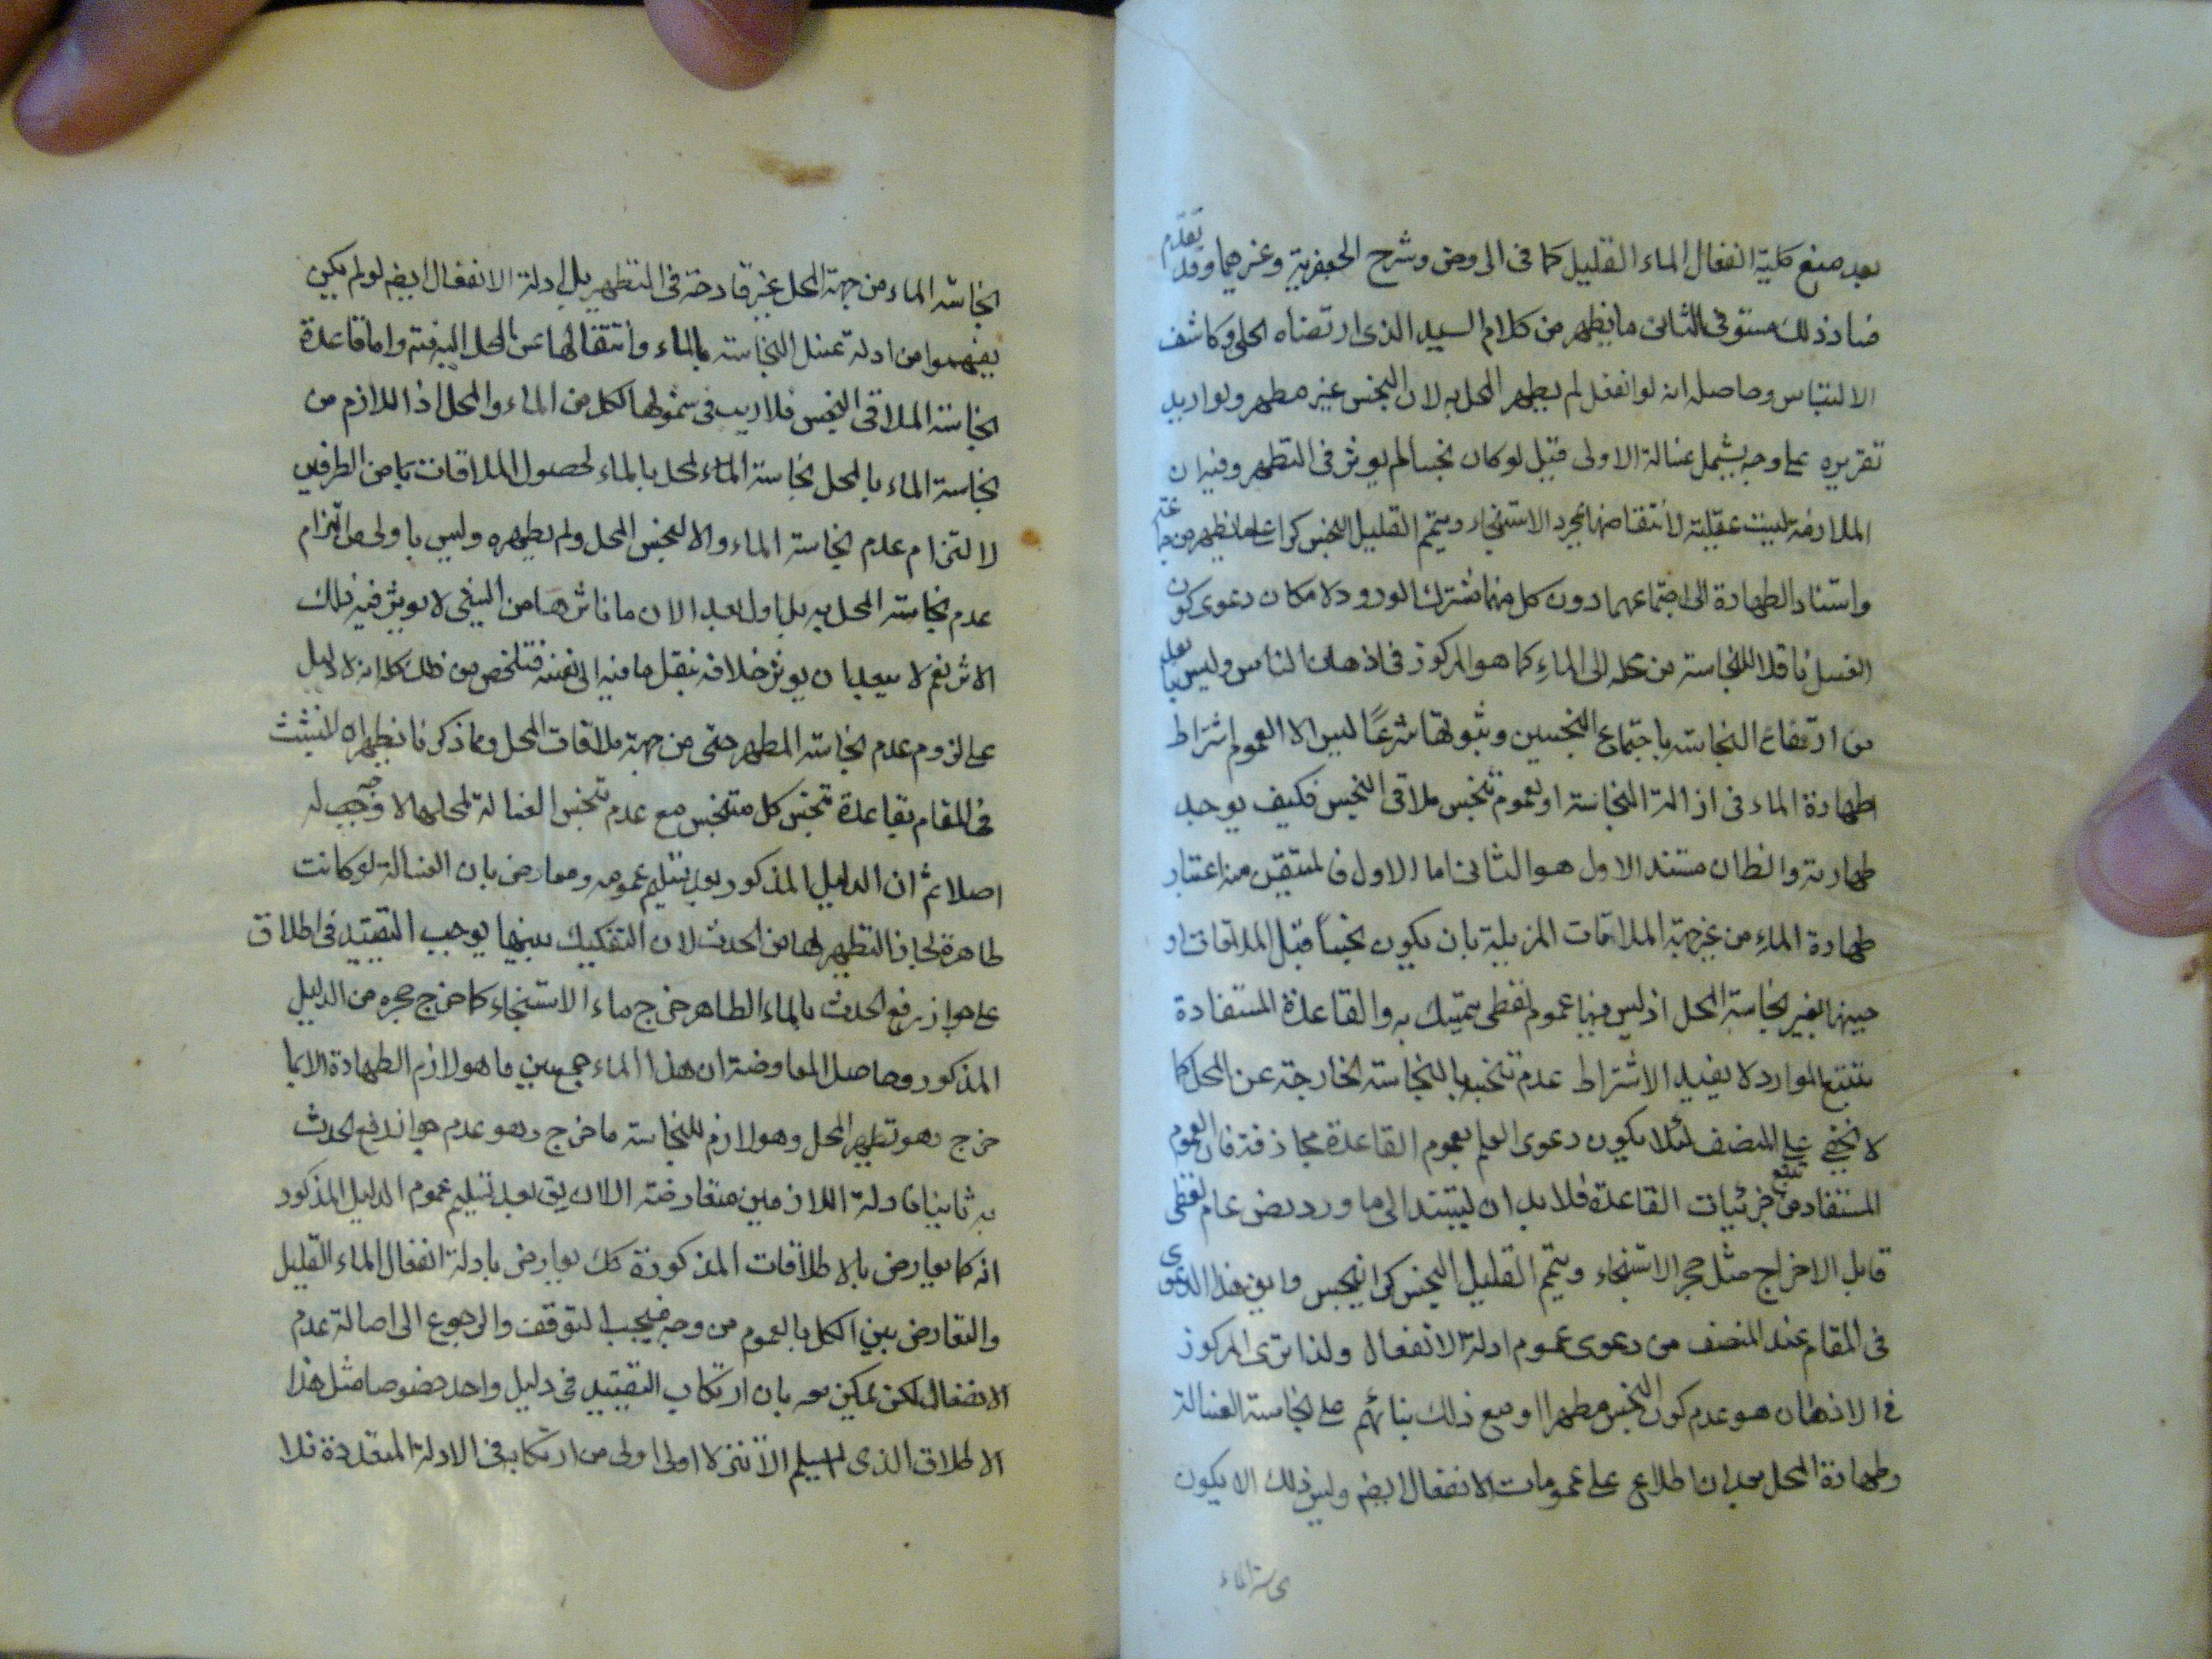 بعد منع كلية انفعال الماء القليل كما في الروض وشرح الجعفرية وغيرهما وقد تقدم
فساد ذلك مستوفى الثاني ما يظهر من كلام السيد الذي ارتضاه الحلي وكاشف
الالتباس وحاصله انه لو انفعل لم يطهر المحل به لان النجس غير مطهر ولو اريد
تقريره على وجه يشمل غسالة الاولى قيل لو كان نجسا لم يوثر في التطهير وفيه ان
الملازمة ليست عقلية لانتقاضها بحجر الاستنجاء ويتمم القليل النجس كرا على ما يظهر من
واستناد الطهارة الى اجتماعهما دون كل منهما مشترك الورود لامكان دعوى كون
الغسل ناقلا للنجاسة من محله الى الماء كما هو المركوز في اذهان الناس وليس بابعد
من ارتفاع النجاسة باجتماع النجسين وثبوتها شرعًا ليس الا لعموم اشتراط
طهارة الماء في ازالة النجاسة او لعموم تنجس ملاقى النجس فكيف يوجد
طهارته والظان مستند الاول هو الثاني اما الاول فالمتيقن منه اعتبار
طهارة الماء من غير جهة الملاقات المزيلة بان يكون نجسًا قبل الملاقات او
حينها بغير نجاسة المحل اذ ليس فيها عموم لفظي يتمسك به والقاعدة المستفادة
بتتبع الموارد لا يفيد الاشتراط عدم تنجسه بالنجاسة الخارجة عن المحل كما
لا يخفى على المنصف لئلا يكون دعوى العلم بعموم القاعدة مجازفة فان العموم
المستفاد من تتبع جزئيات القاعدة فلا بد ان يستند الى ما ورد بنص عام لفظي
قابل الاخراج مثل حجر الاستنجاء ويتمم القليل النجس كرا بنجس واين هذا الدعوى
في المقام عند المنصف من دعوى عموم ادلة الانفعال ولذا ترى المركوز
في الاذهان هو عدم كون النجس مطهرا ومع ذلك بنائهم على نجاسة الغسالة
وطهارة المحل بعد ان اطلاع على عمومات الانفعال ايضم وليس ذلك الا يكون
نجاسة الماء
نجاسة الماء من جهة المحل غير قادحة في التطهير بل ادلة الانفعال ايضم لو لم يكن
يفهموا من ادلة غسل النجاسة بالماء وانتقالها عن المحل اليه فتم واما قاعدة
نجاسة الملاقى النجس فلا ريب في شمولها لكل من الماء والمحل اذ اللازم من
نجاسة الماء بالمحل نجاسة المحل بالماء لحصول الملاقات بما من الطرفين
لالتزام عدم نجاسة الماء والا لنجس المحل ولم يطهره وليس باولى من التزام
عدم نجاسة المحل به بل اول بعد الان ما ناش هنا من الشئ لا يوثر فيه ذلك
الاثر نعم لا يبعد ان يوثر خلافه بنقل ما فيه الى نفسه فتلخص من ذلك كله انه لا دليل
على لزوم عدم نجاسة المطهر حتى من جهة ملاقات المحل ومما ذكرنا يظهر ان التشبث
في المقام بقاعدة تنجس كل متنجس مع عدم تنجس الغسالة لمحلها لا وجه له
اصلا ثم ان الدليل المذكور بعد تسليم عمومه ومعارض بان الغسالة لو كانت
طاهرة لجاز التطهير لها من الحدث لان التفكيك بينهما يوجب التقييد في اطلاق
على جواز رفع الحدث بالماء الطاهر خرج ماء الاستنجاء كما خرج حجره من الدليل
المذكور وحاصل المعاوضة ان هذا الماء جمع بين ما هو لازم الطهارة الا بما
خرج وهو تطهير المحل وهو لازم للنجاسة ما خرج وهو عدم جواز رفع الحدث
به ثانيا فادلة اللازمين متعارضة الا ان يق بعد تسليم عموم الدليل المذكور
انه كما يعارض بالاطلاقات المذكورة كك يعارض بادلة انفعال الماء القليل
والتعارض بين الكل بالعموم من وجه فيجب التوقف والرجوع الى اصالة عدم
الانفعال لكن يمكن بان ارتكاب التقييد في دليل واحد خصوصا مثل هذا
الاطلاق الذي اولى من ارتكابه في الادلة المتعددة فلا